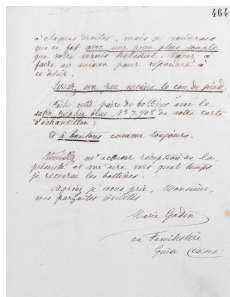 464
à claques vernies, mais je voudrais
que ce fût avec une peau plus souple
que votre vernis habituel. Tâchez de
faire au mieux pour répondre à
ce désir.
Serrez un peu moins le cou de pied.
Faites cette paire de bottines avec le
satin bleu, No 7,903 de votre carte
d'échantillon;
Et à boutons comme toujours.
Veuillez m'accuser réception de la
présente et me dire vers quel temps
je recevrai les bottines.
Agréez je vous prie, Monsieur,
mes parfaites civilités
Marie Godin
au Familistère
Guise (Aisne)